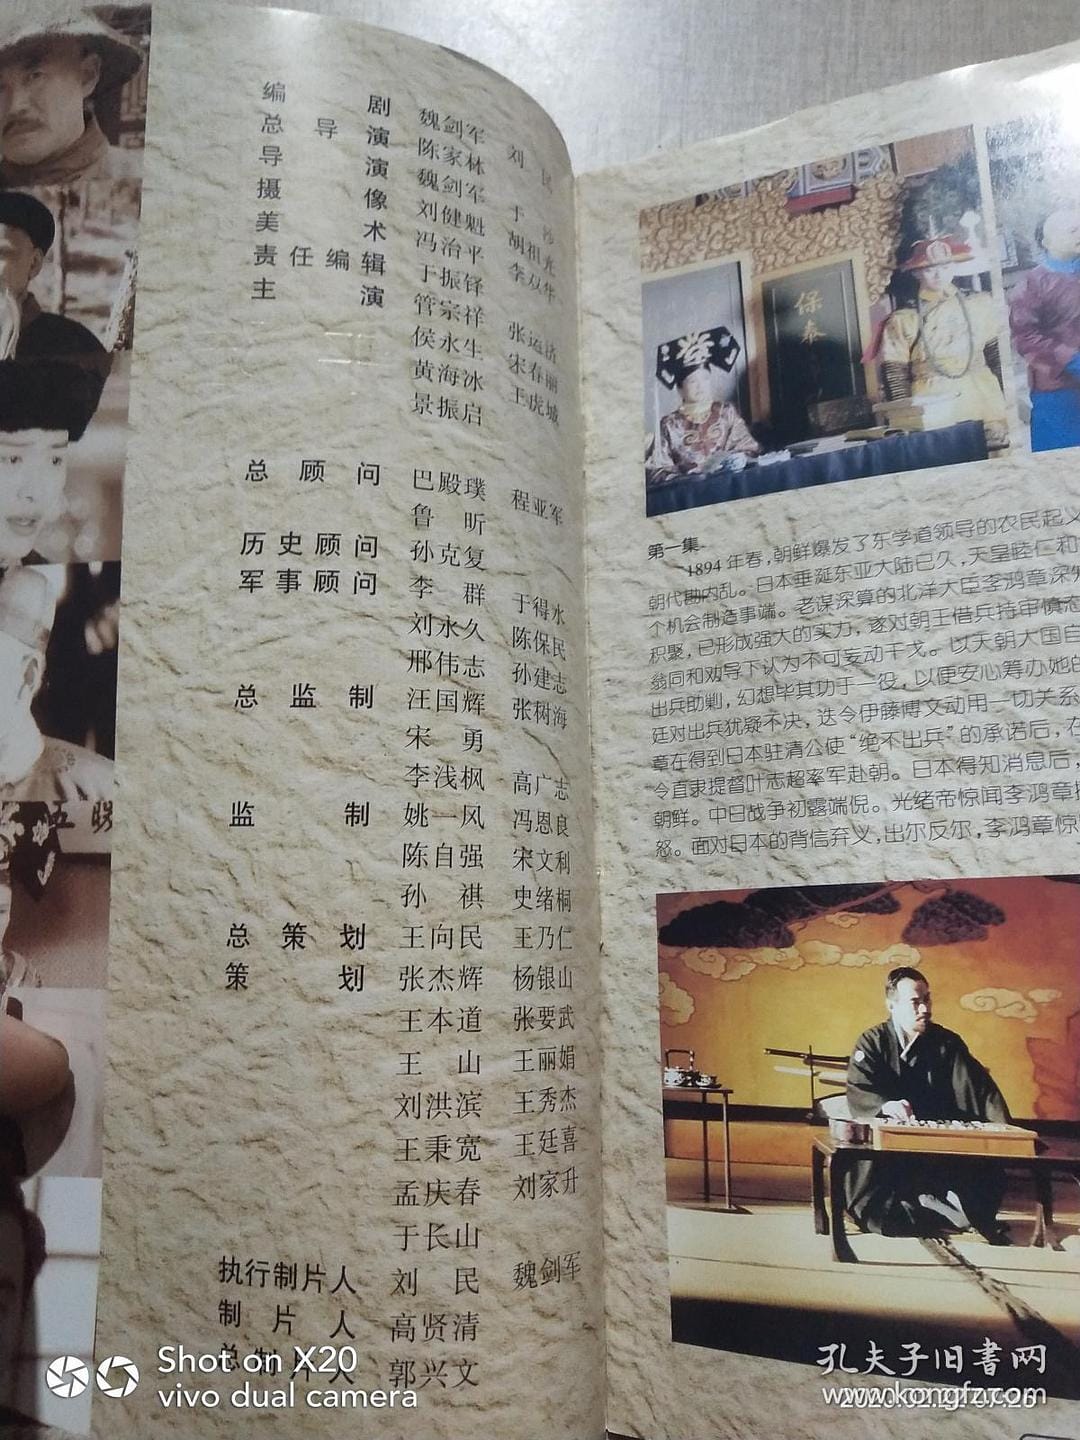 编剧 魏剑军 刘民
总导演 陈家林
导演 魏剑军 于
摄像 刘健魁 胡祖光
美术 冯治平 李双华
责任编辑 于振铎
主演 管宗祥 张运济
侯永生 宋春丽
黄海冰 王虎城
景振启
总顾问 巴殿璞 程亚军
鲁昕
历史顾问 孙克复
军事顾问 李群 于得水
刘永久 陈保民
邢伟志 孙建志
总监制 汪国辉 张树海
宋勇
李浅枫 高广志
监制 姚一风 冯恩良
陈自强 宋文利
孙祺 史绪桐
总策划 王向民 王乃仁
策划 张杰辉 杨银山
王本道 张要武
王山 王丽娟
刘洪滨 王秀杰
王秉宽 王廷喜
孟庆春 刘家升
于长山
执行制片人 刘民 魏剑军
制片人 高贤清
总制片人 郭兴文
保泰
第一集
1894年春,朝鲜爆发了东学道领导的农民起义
朝代勘内乱。日本垂涎东亚大陆已久,天皇睦仁和
个机会制造事端。老谋深算的北洋大臣李鸿章深知
积聚,已形成强大的实力,遂对朝王借兵持审慎态
翁同和劝导下认为不可妄动干戈。以天朝大国自
出兵助剿,幻想毕其功于一役,以便安心筹办她的
廷对出兵犹疑不决,迭令伊藤博文动用一切关系
章在得到日本驻清公使“绝不出兵”的承诺后,在
令直隶提督叶志超率军赴朝。日本得知消息后,
朝鲜。中日战争初露端倪。光绪帝惊闻李鸿章
怒。面对日本的背信弃义,出尔反尔,李鸿章惊
Shot on X20
vivo dual camera
孔夫子旧書网
www.kongfz.com
2020.02.22 07:26